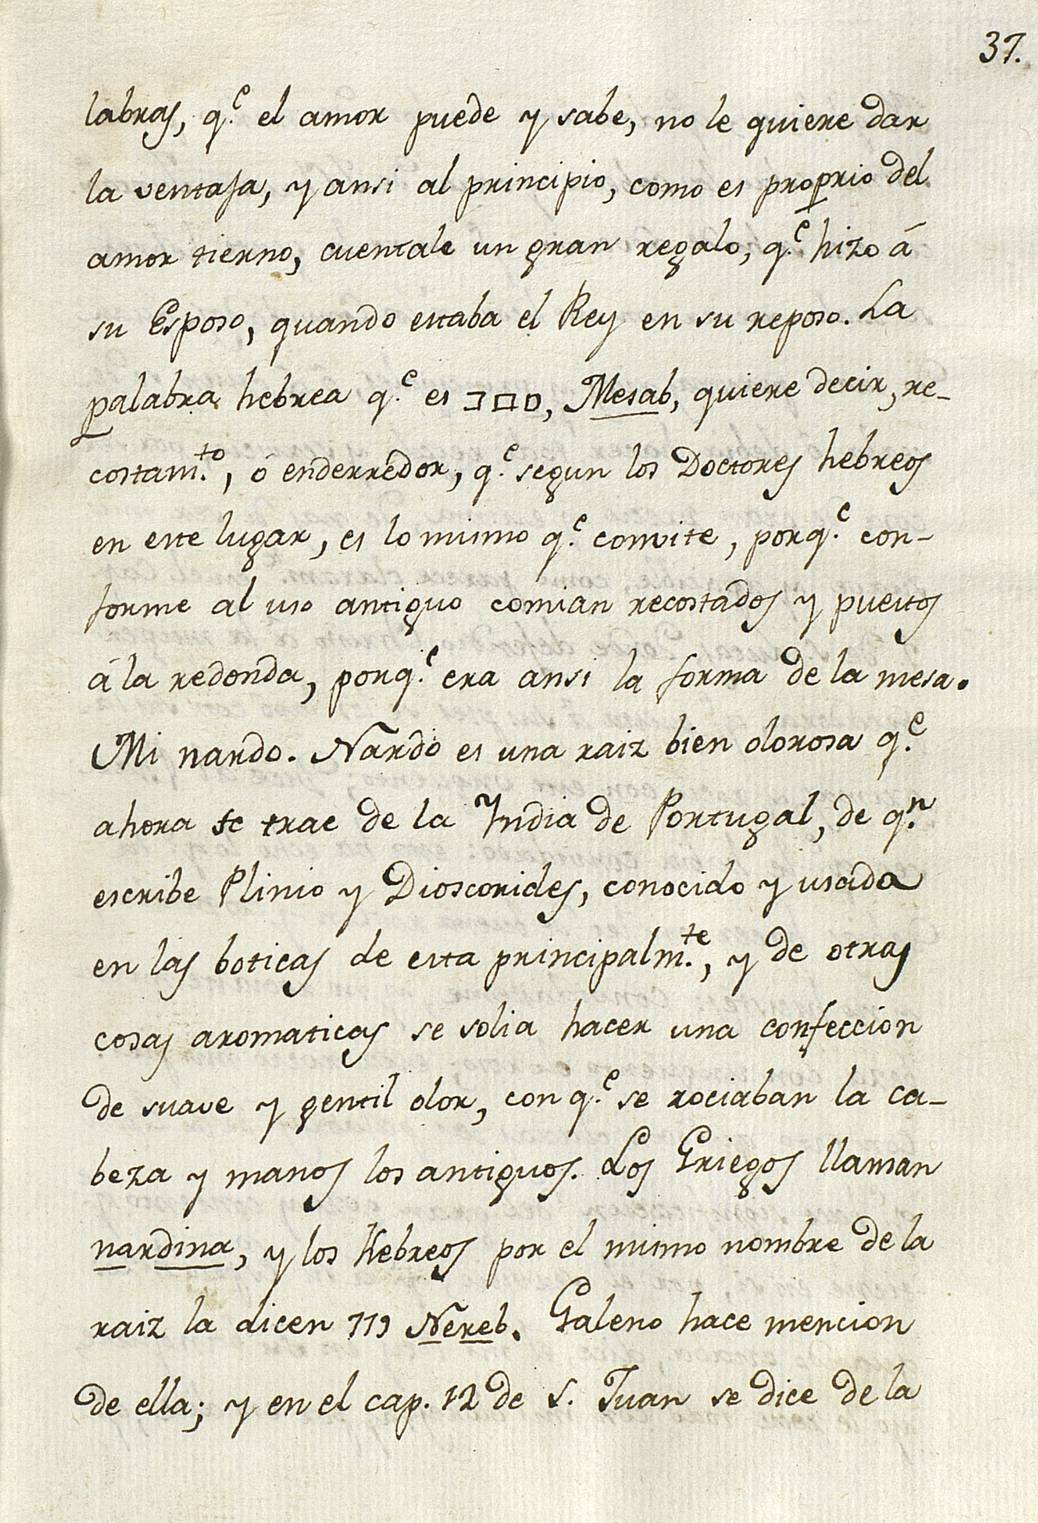 37.
labras, q.e el amor puede y sabe, no le quiere dar
la ventaja, y ansi al principio, como es proprio del
amor tierno, cuentale un gran regalo, q.e hizo á
su Esposo, quando estaba el Rey en su reposo. La
palabra hebrea q.e es מסב, Mesab, quiere decir, re-
costam.to, ó enderredor, q.e segun los Doctores hebreos
en este lugar, es lo mismo q.e convite, porq.e con-
forme al uso antiguo comian recostados y puestos
á la redonda, porq.e era ansi la forma de la mesa.
Mi nardo. Nardo es una raiz bien olorosa q.e
ahora se trae de la India de Portugal, de q.n
escribe Plinio y Dioscorides, conocido y usada
en las boticas de esta principalm.te, y de otras
cosas aromaticas se solia hacer una confeccion
de suave y gentil olor, con q.e se rociaban la ca-
beza y manos los antiguos. Los Griegos llaman
nardina, y los Hebreos por el mismo nombre de la
raiz la dicen Nereb. Galeno hace mencion
de ella; y en el cap. 12 de S. Juan se dice de la